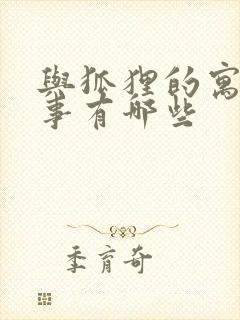 與狐狸的寓
事有哪些
季育奇